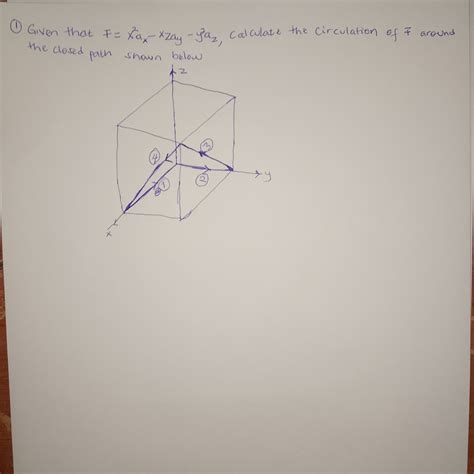 ① Given that F̄ = x²aₓ - xzaᵧ - y²a_z, Calculate the Circulation of F̄ around
the closed path shown below
z
③
④
②
①
y
x